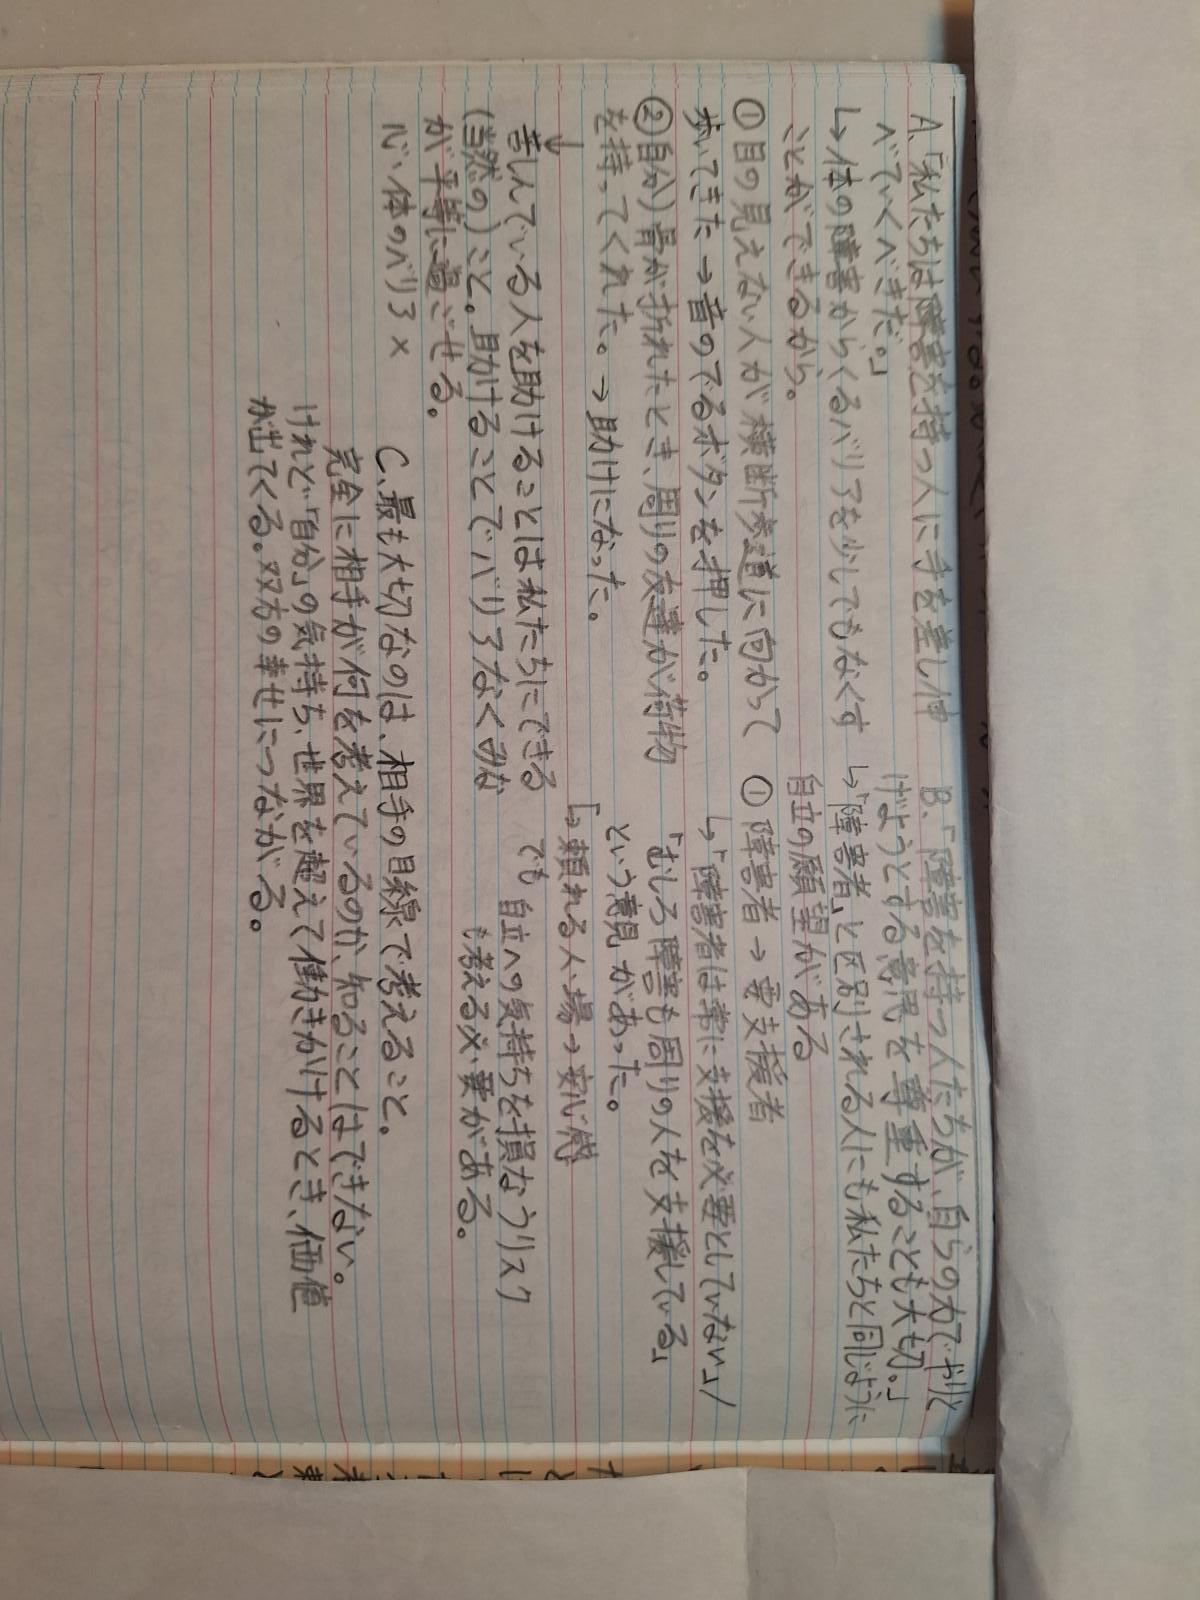 A.「私たちは障害を持つ人に手を差し伸
べていくべきだ。」
↳体の障害からくるバリアを少しでもなくす
ことができるから。
①目の見えない人が横断歩道に向かって
歩いてきた→音のでるボタンを押した。
②自分)骨が折れたとき、周りの友達が荷物
を持ってくれた。→助けになった。
↓
苦しんでいる人を助けることは私たちにできる
(当然の)こと。助けることでバリアなくみな
が平等に過ごせる。
心・体のバリア×
B.「障害を持つ人たちが、自らの力でやりと
げようとする意思を尊重することも大切。」
↳「障害者」と区別される人にも私たちと同じように
自立の願望がある
①障害者→要支援者
↳「障害者は常に支援を必要としていない」/
「むしろ障害も周りの人を支援している」
という意見があった。
↳頼れる人・場→安心感
でも自立への気持ちを損なうリスク
も考える必要がある。
C.最も大切なのは、相手の目線で考えること。
完全に相手が何を考えているのか、知ることはできない。
けれど「自分」の気持ち、世界を超えて働きかけるとき、価値
が出てくる。双方の幸せにつながる。